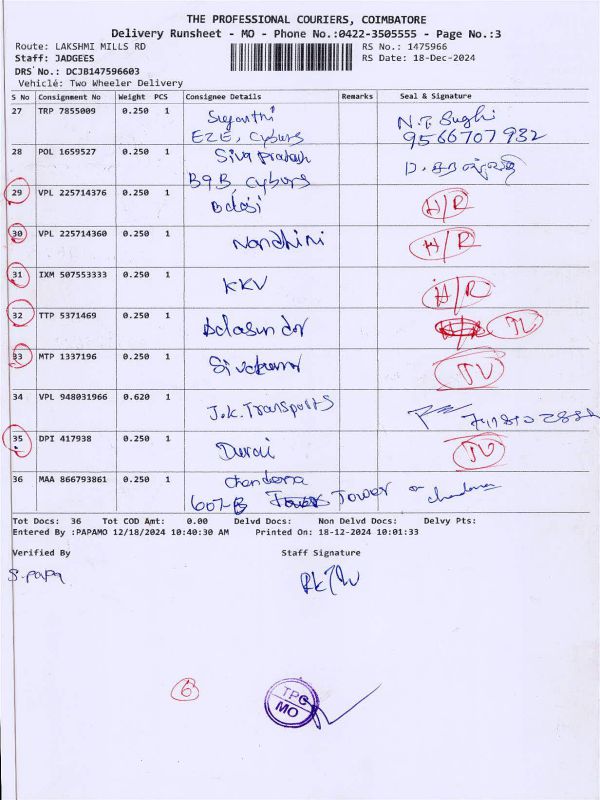 THE PROFESSIONAL COURIERS, COIMBATORE
Delivery Runsheet - MO - Phone No.:0422-3505555 - Page No.:3
Route: LAKSHMI MILLS RD
RS No.: 1475966
Staff: JADGEES
RS Date: 18-Dec-2024
DRS No.: DCJB147596603
Vehicle: Two Wheeler Delivery
S No Consignment No Weight PCS Consignee Details Remarks Seal & Signature
27 TRP 7855009 0.250 1 Suganthi N.T. Sughi
EZE, Cyburs 9566707932
28 POL 1659527 0.250 1 Siva Prakash
B9B Cyburs
29 VPL 225714376 0.250 1 Balaji H/R
30 VPL 225714360 0.250 1 Nandhini H/R
31 IXM 507553333 0.250 1 KKV H/R
32 TTP 5371469 0.250 1 Balasundar
33 MTP 1337196 0.250 1 Sivakumar
34 VPL 948031966 0.620 1 J.K. Transports
35 DPI 417938 0.250 1 Durai
36 MAA 866793861 0.250 1 Chandema
607-B Tower
Tot Docs: 36 Tot COD Amt: 0.00 Delvd Docs: Non Delvd Docs: Delvy Pts:
Entered By :PAPAMO 12/18/2024 10:40:30 AM Printed On: 18-12-2024 10:01:33
Verified By Staff Signature
S. Papa
6
TPC
MO